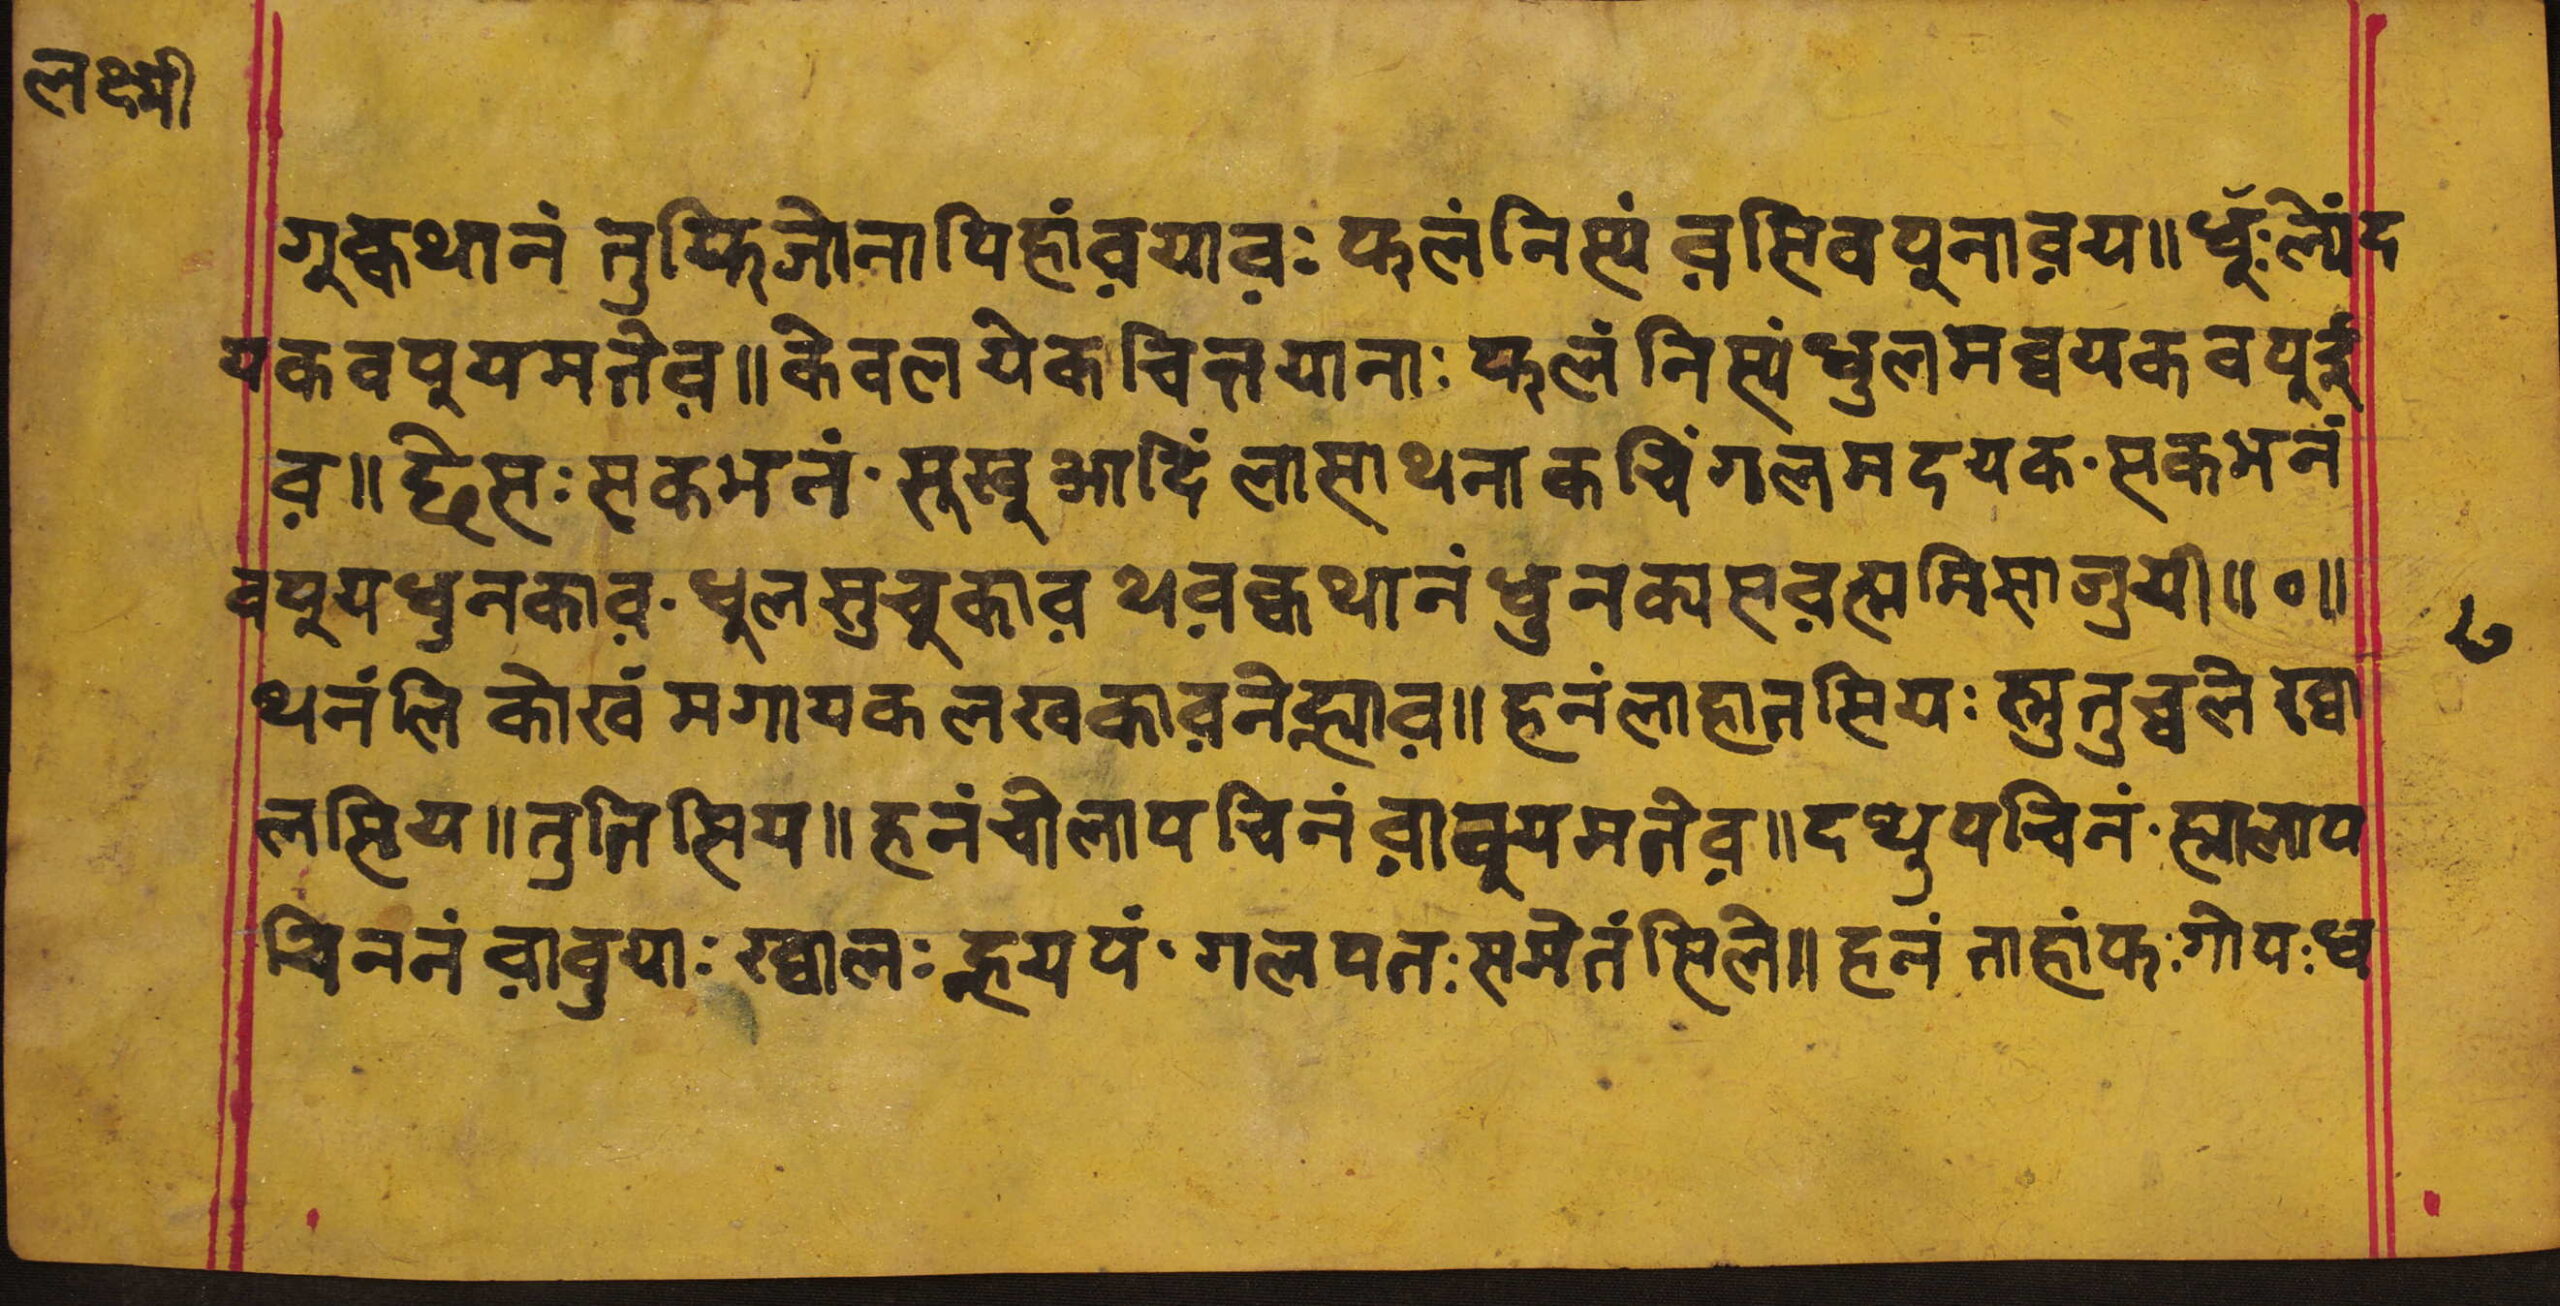 लक्ष्मी
गुह्कथानं तुफिजोनापिहांव़याव़ः फलंनिस्यं व़सिवपुनाव़य॥ धूँःल्येंद
यकवपुयमतेव़॥ केवलयेकचित्तयानाः फलंनिस्यंधुलमव्वयकवपुई
व़॥ द्धेसः सकभनं· सुखुआदिं लासाथनाकचिंगलमदयक· सकभनं
वपुयधुनकाव़· धुलसुचुकाव़ थव़क्वथानंधुनक्यसव़ह्ममिसाजुयी॥०॥
थनंलि कोखं मगायकलखकाव़नेह्माव़॥ हनंलाहातसियः स्तुतुच्वले ख्वा
लसिय॥ तुतिसिय॥ हनंचीलापचिनंव़ाबुयमतेव़॥ दथुपचिनं· ह्मालाप
चिननंव़ावुयाः ख्वालः ह्नयपं· गलपतः समेतंसिले॥ हनं ताहांफःगोपःध्व
७